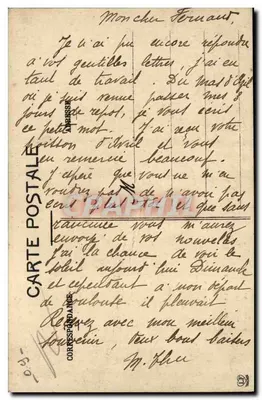 Mon cher Fernand,
Je n'ai pu encore répondre
à vos gentilles lettres, j'ai eu
tant de travail. Du Mas d'Azil
où je suis venue passer mes 8
jours de repos, je vous écris
ce petit mot. J'ai reçu votre
poisson d'Avril et vous
en remercie beaucoup.
J'espère que vous ne m'en
voudrez pas de n'avoir pas
écrit plus tôt et que sans
rancune vous m'aurez
envoyé de vos nouvelles
j'ai la chance de voir le
soleil aujourd'hui Dimanche
et cependant à mon départ
de Toulouse il pleuvait
Recevez avec mon meilleur
souvenir, bons baisers
CARTE POSTALE
ADRESSE
CORRESPONDANCE
CPAPHIL